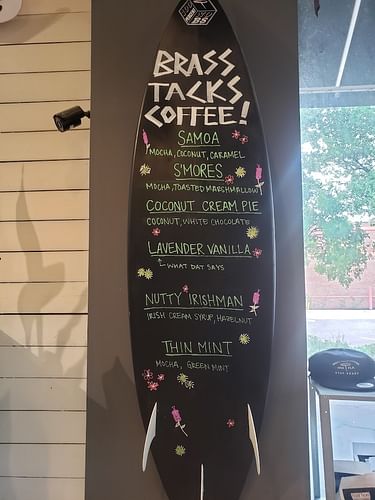 BRASS
TACKS
COFFEE!
SAMOA
MOCHA, COCONUT, CARAMEL
S'MORES
MOCHA, TOASTED MARSHMALLOW
COCONUT CREAM PIE
COCONUT, WHITE CHOCOLATE
LAVENDER VANILLA
WHAT DAT SAYS
NUTTY IRISHMAN
IRISH CREAM SYRUP, HAZELNUT
THIN MINT
MOCHA, GREEN MINT